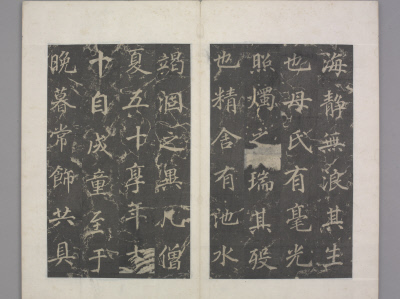 海静無浪其生
也母氏有毫光
照燭之瑞其殁
也精舍有池水
竭涸之異凡僧
夏五十享年
十自成童至于
晚暮常飾共具